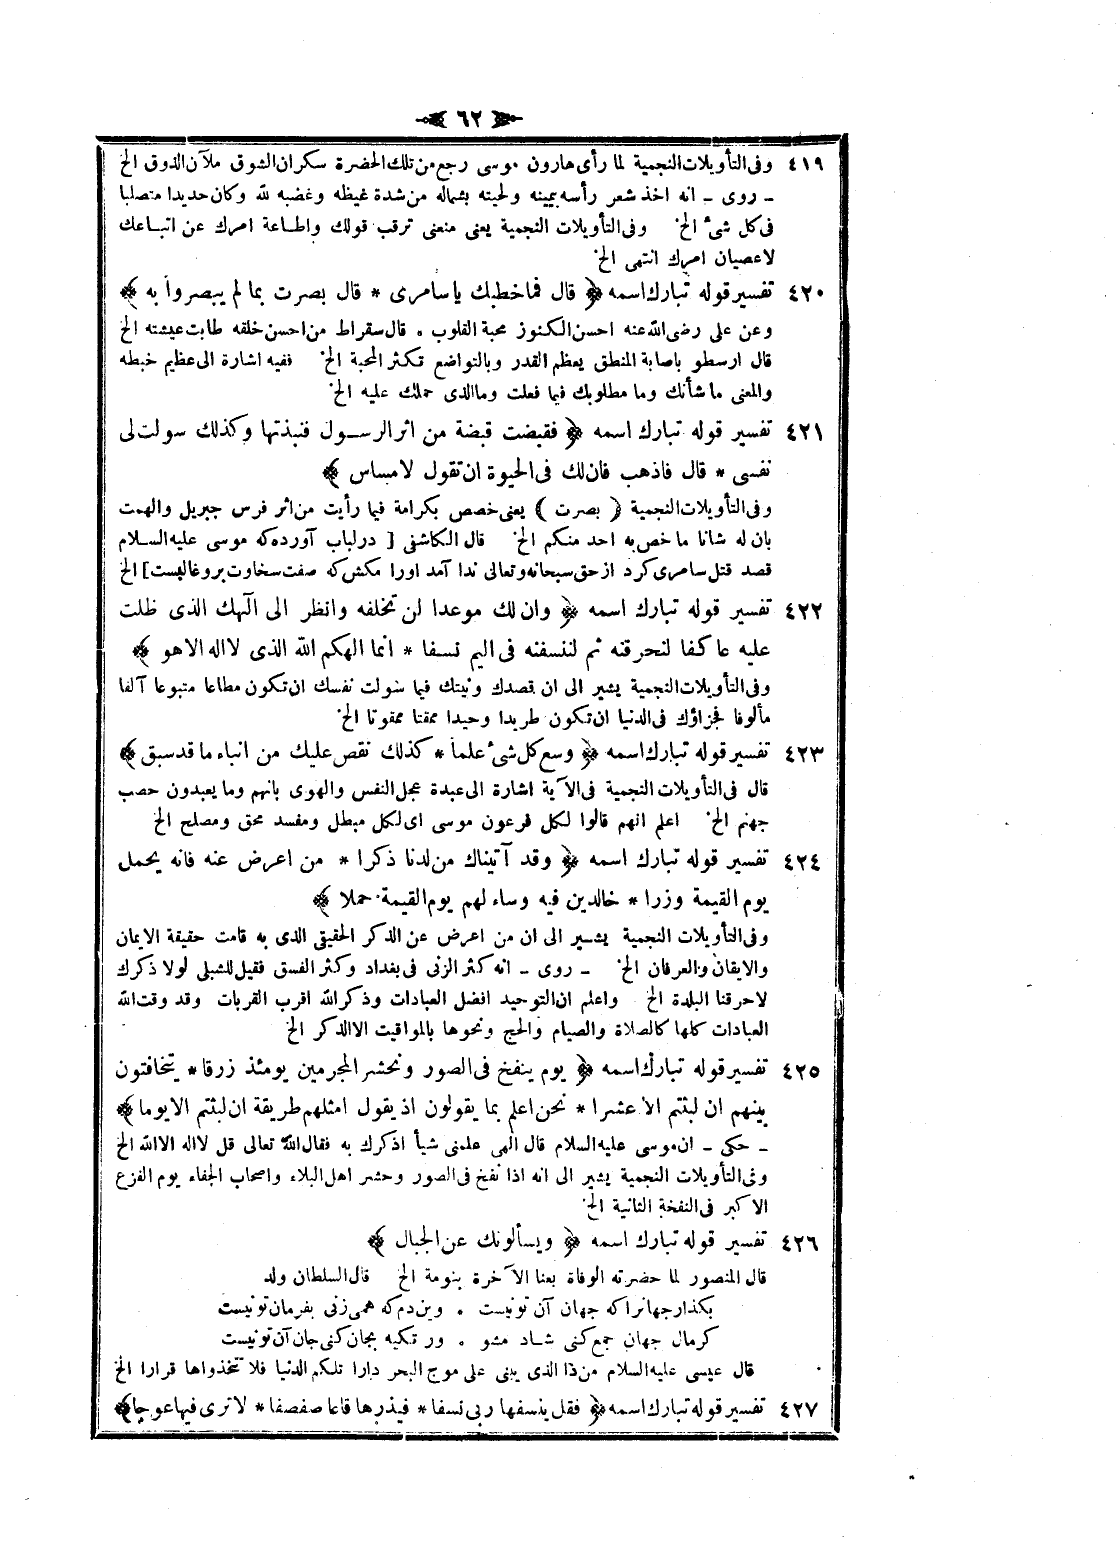 ٦٢
٤١٩ وفى التأويلات النجمية لما رأى هارون موسى رجع من تلك الحضرة سكران الشوق ملآن الذوق الخ
ـ روى ـ انه اخذ شعر رأسه بيمينه ولحيته بشماله من شدة غيظه وغضبه لله وكان حديدا متصلبا
فى كل شئ الخ. وفى التأويلات النجمية يعنى منعنى ترقب قولك واطاعة امرك عن اتباعك
لاعصيان امرك انتهى الخ.
٤٢٠ تفسير قوله تبارك اسمه ﴿ قال فما خطبك يا سامرى * قال بصرت بما لم يبصروا به ﴾
وعن على رضى الله عنه احسن الكنوز محبة القلوب . قال سقراط من احسن خلقه طابت عيشته الخ
قال ارسطو باصابة المنطق يعظم القدر وبالتواضع تكثر المحبة الخ. ففيه اشارة الى عظيم خبطه
والمعنى ما شأنك وما مطلوبك فيما فعلت وما الذى حملك عليه الخ.
٤٢١ تفسير قوله تبارك اسمه ﴿ فقبضت قبضة من اثر الرسول فنبذتها وكذلك سولت لى
نفسى * قال فاذهب فان لك فى الحيوة ان تقول لامساس ﴾
وفى التأويلات النجمية ( بصرت ) يعنى خصص بكرامة فيما رأيت من اثر فرس جبريل والهمت
بان له شانا ما خص به احد منكم الخ. قال الكاشفى [ در لباب آورده كه موسى عليه السلام
قصد قتل سامرى كرد از حق سبحانه وتعالى ندا آمد اورا مكش كه صفت سخاوت بروغالبست] الخ
٤٢٢ تفسير قوله تبارك اسمه ﴿ وان لك موعدا لن تخلفه وانظر الى آلهك الذى ظلت
عليه عاكفا لنحرقنه ثم لننسفنه فى اليم نسفا * انما الهكم الله الذى لا اله الاهو ﴾
وفى التأويلات النجمية يشير الى ان قصدك ونيتك فيما سولت نفسك ان تكون مطاعا متبوعا آلفا
مألوفا فجزاؤك فى الدنيا ان تكون طريدا وحيدا ممقتا ممقوتا الخ.
٤٢٣ تفسير قوله تبارك اسمه ﴿ وسع كل شئ علما * كذلك نقص عليك من انباء ما قد سبق ﴾
قال فى التأويلات النجمية فى الآية اشارة الى عبدة عجل النفس والهوى بانهم وما يعبدون حصب
جهنم الخ. اعلم انهم قالوا لكل فرعون موسى اى لكل مبطل ومفسد محق ومصلح الخ
٤٢٤ تفسير قوله تبارك اسمه ﴿ وقد آتيناك من لدنا ذكرا * من اعرض عنه فانه يحمل
يوم القيمة وزرا * خالدين فيه وساء لهم يوم القيمة حملا ﴾
وفى التأويلات النجمية يشير الى ان من اعرض عن الذكر الحقيقى الذى به قامت حقيقة الايمان
والايقان والعرفان الخ. ـ روى ـ انه كثر الزنى فى بغداد وكثر الفسق فقيل للشبلى لولا ذكرك
لاحرقنا البلدة الخ واعلم ان التوحيد افضل العبادات وذكر الله اقرب القربات وقد وقت الله
العبادات كلها كالصلاة والصيام والحج ونحوها بالمواقيت الاالذكر الخ
٤٢٥ تفسير قوله تبارك اسمه ﴿ يوم ينفخ فى الصور ونحشر المجرمين يومئذ زرقا * يتخافتون
بينهم ان لبثتم الا عشرا * نحن اعلم بما يقولون اذ يقول امثلهم طريقة ان لبثتم الايوما ﴾
ـ حكى ـ ان موسى عليه السلام قال الهى علمنى شيأ اذكرك به فقال الله تعالى قل لااله الاالله الخ
وفى التأويلات النجمية يشير الى انه اذا نفخ فى الصور وحشر اهل البلاء واصحاب الجفاء يوم الفزع
الاكبر فى النفخة الثانية الخ.
٤٢٦ تفسير قوله تبارك اسمه ﴿ ويسألونك عن الجبال ﴾
قال المنصور لما حضرته الوفاة بعنا الآخرة بنومة الخ قال السلطان ولد
بكذار جهانراكه جهان آن تونيست . وين دم كه همى زنى بفرمان تونيست
كرمال جهان جمع كنى شاد مشو . ور تكيه بجان كنى جان آن تونيست
قال عيسى عليه السلام من ذا الذى يبنى على موج البحر دارا تلكم الدنيا فلا تتخذواها قرارا الخ
٤٢٧ تفسير قوله تبارك اسمه ﴿ فقل ينسفها ربى نسفا * فيذرها قاعا صفصفا * لاترى فيها عوجا ﴾